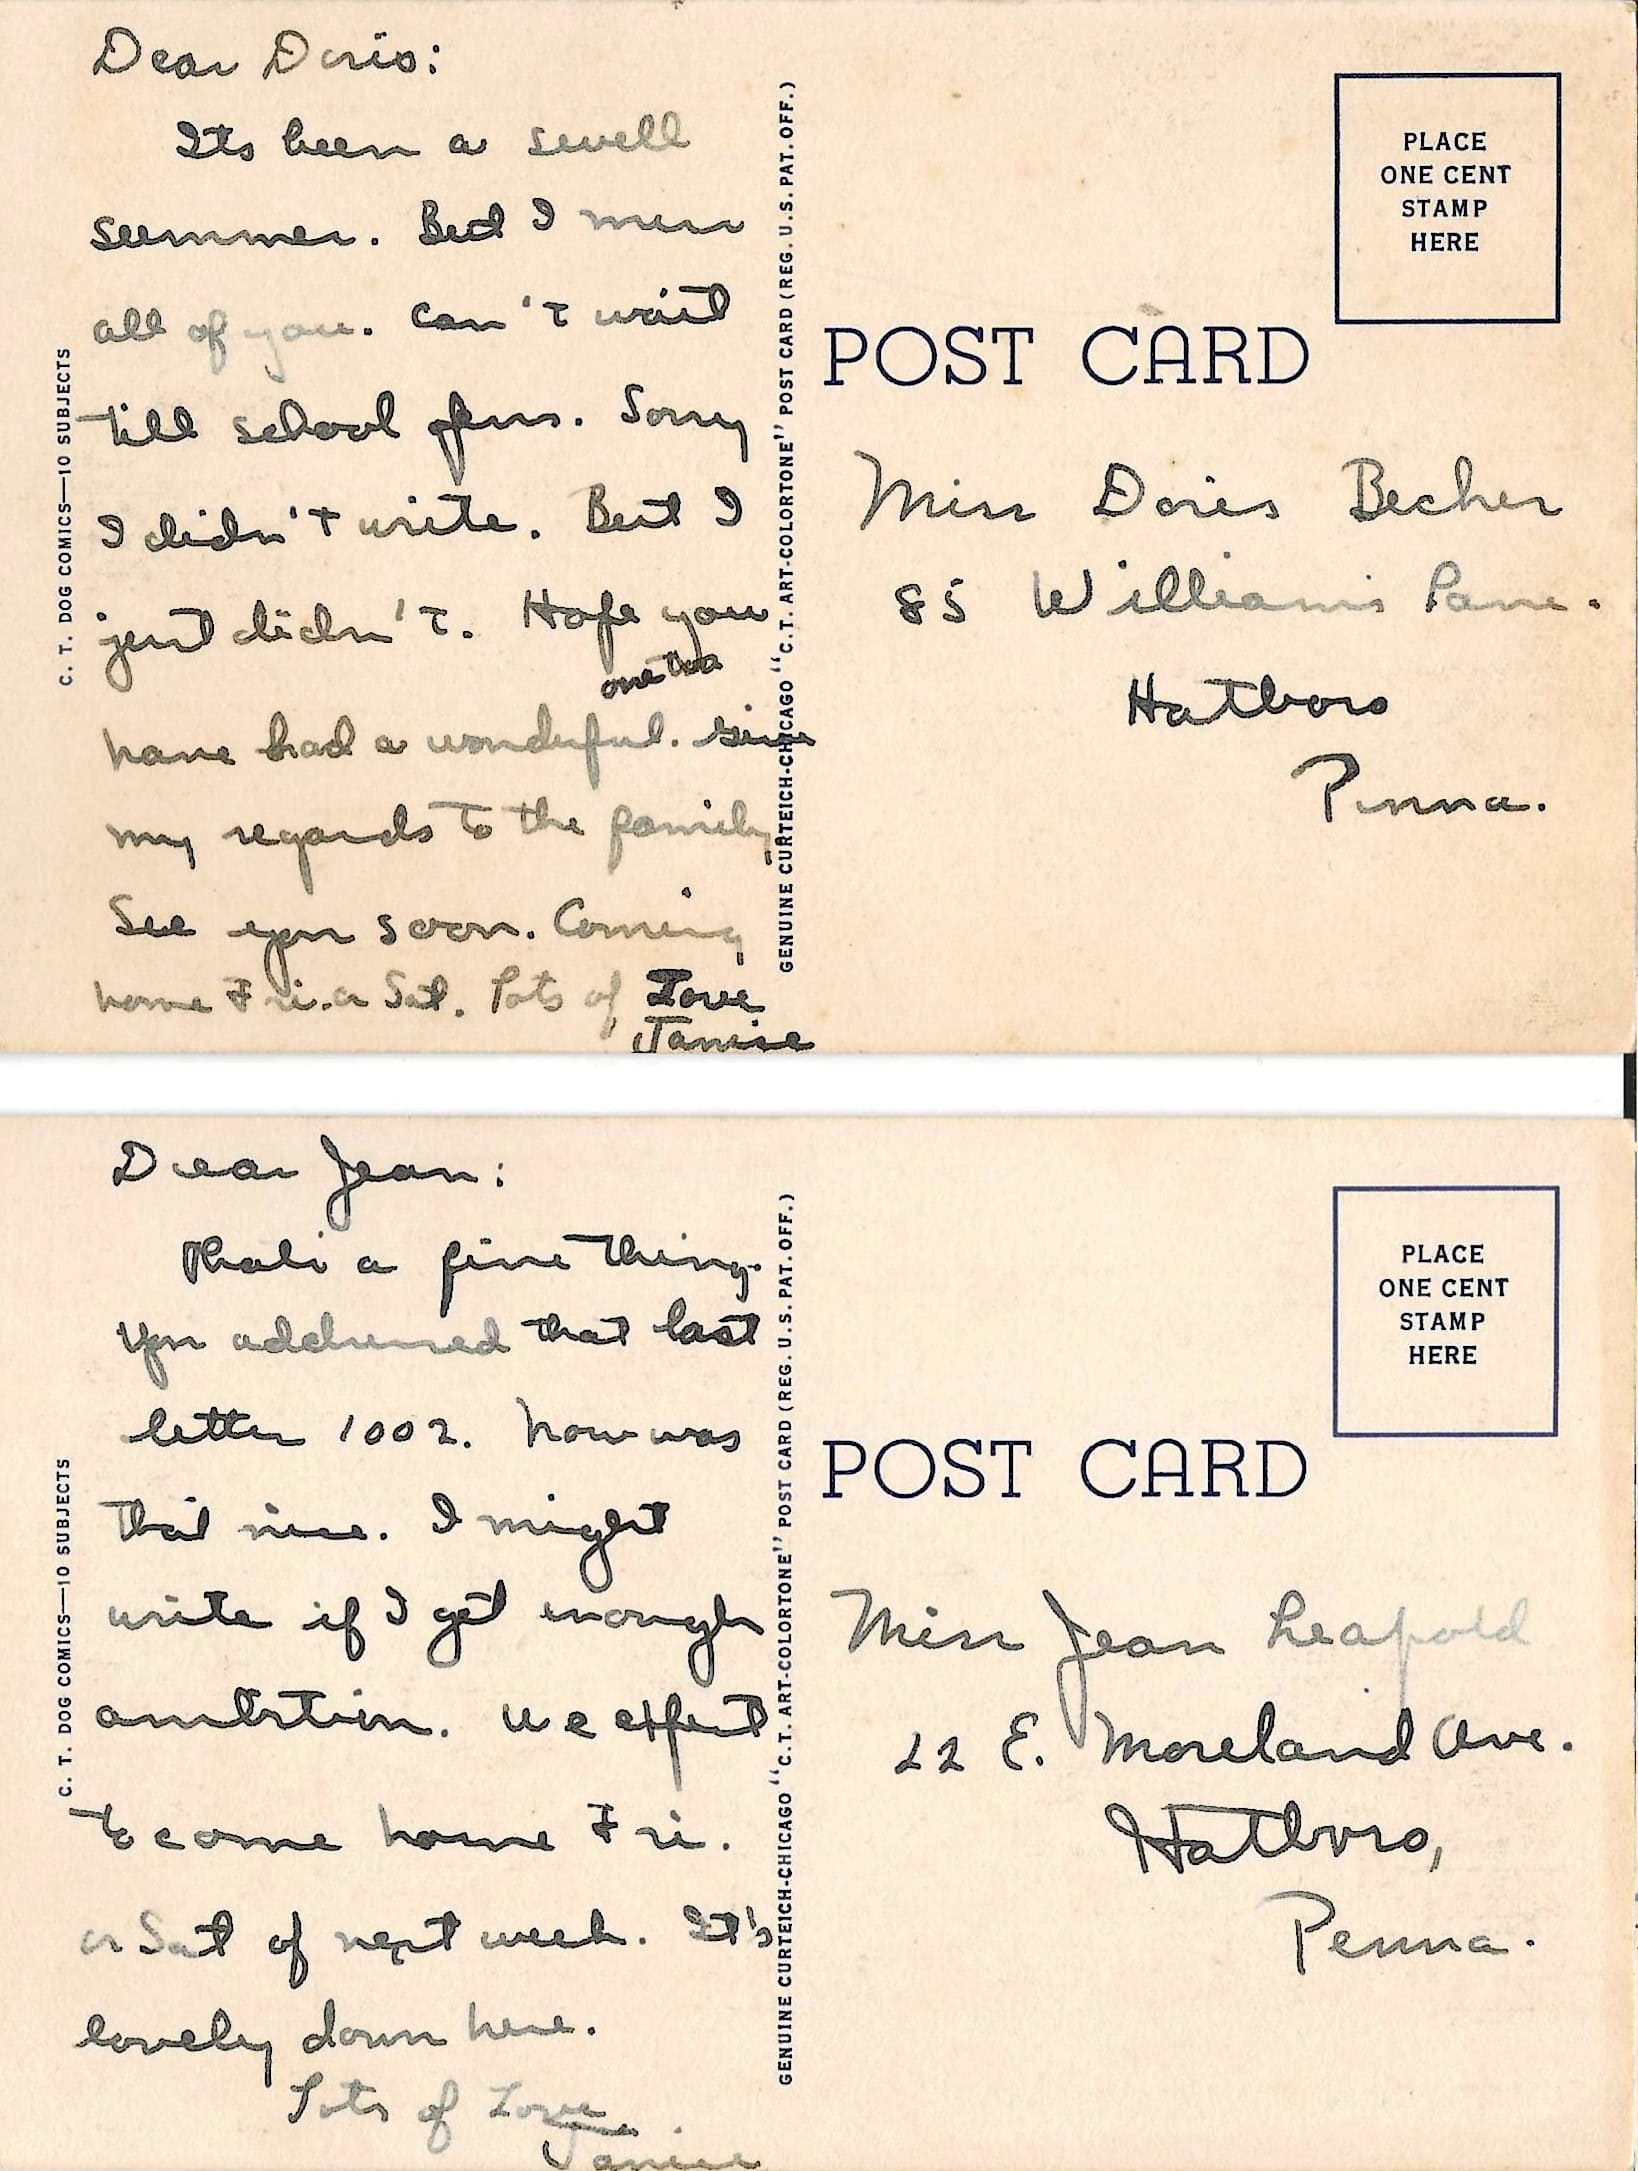 Dear Doris:
Its been a swell
summer. But I miss
all of you. Can't wait
till school opens. Sorry
I didn't write. But I
just didn't. Hope you
one too
have had a wonderful. Give
my regards to the family
See you soon. Coming
home Fri. or Sat. Lots of Love
Janice
C. T. DOG COMICS—10 SUBJECTS
GENUINE CURTEICH-CHICAGO "C. T. ART-COLORTONE" POST CARD (REG. U.S. PAT. OFF.)
PLACE
ONE CENT
STAMP
HERE
POST CARD
Miss Doris Becher
85 Williams Lane.
Hatboro
Penna.
Dear Jean:
Thats a fine thing.
You addressed that last
letter 1002. Now was
that nice. I might
write if I get enough
ambition. We expect
to come home Fri.
or Sat of next week. It's
lovely down here.
Lots of Love
Janice
C. T. DOG COMICS—10 SUBJECTS
GENUINE CURTEICH-CHICAGO "C. T. ART-COLORTONE" POST CARD (REG. U.S. PAT. OFF.)
PLACE
ONE CENT
STAMP
HERE
POST CARD
Miss Jean Leapold
22 E. Moreland Ave.
Hatboro,
Penna.